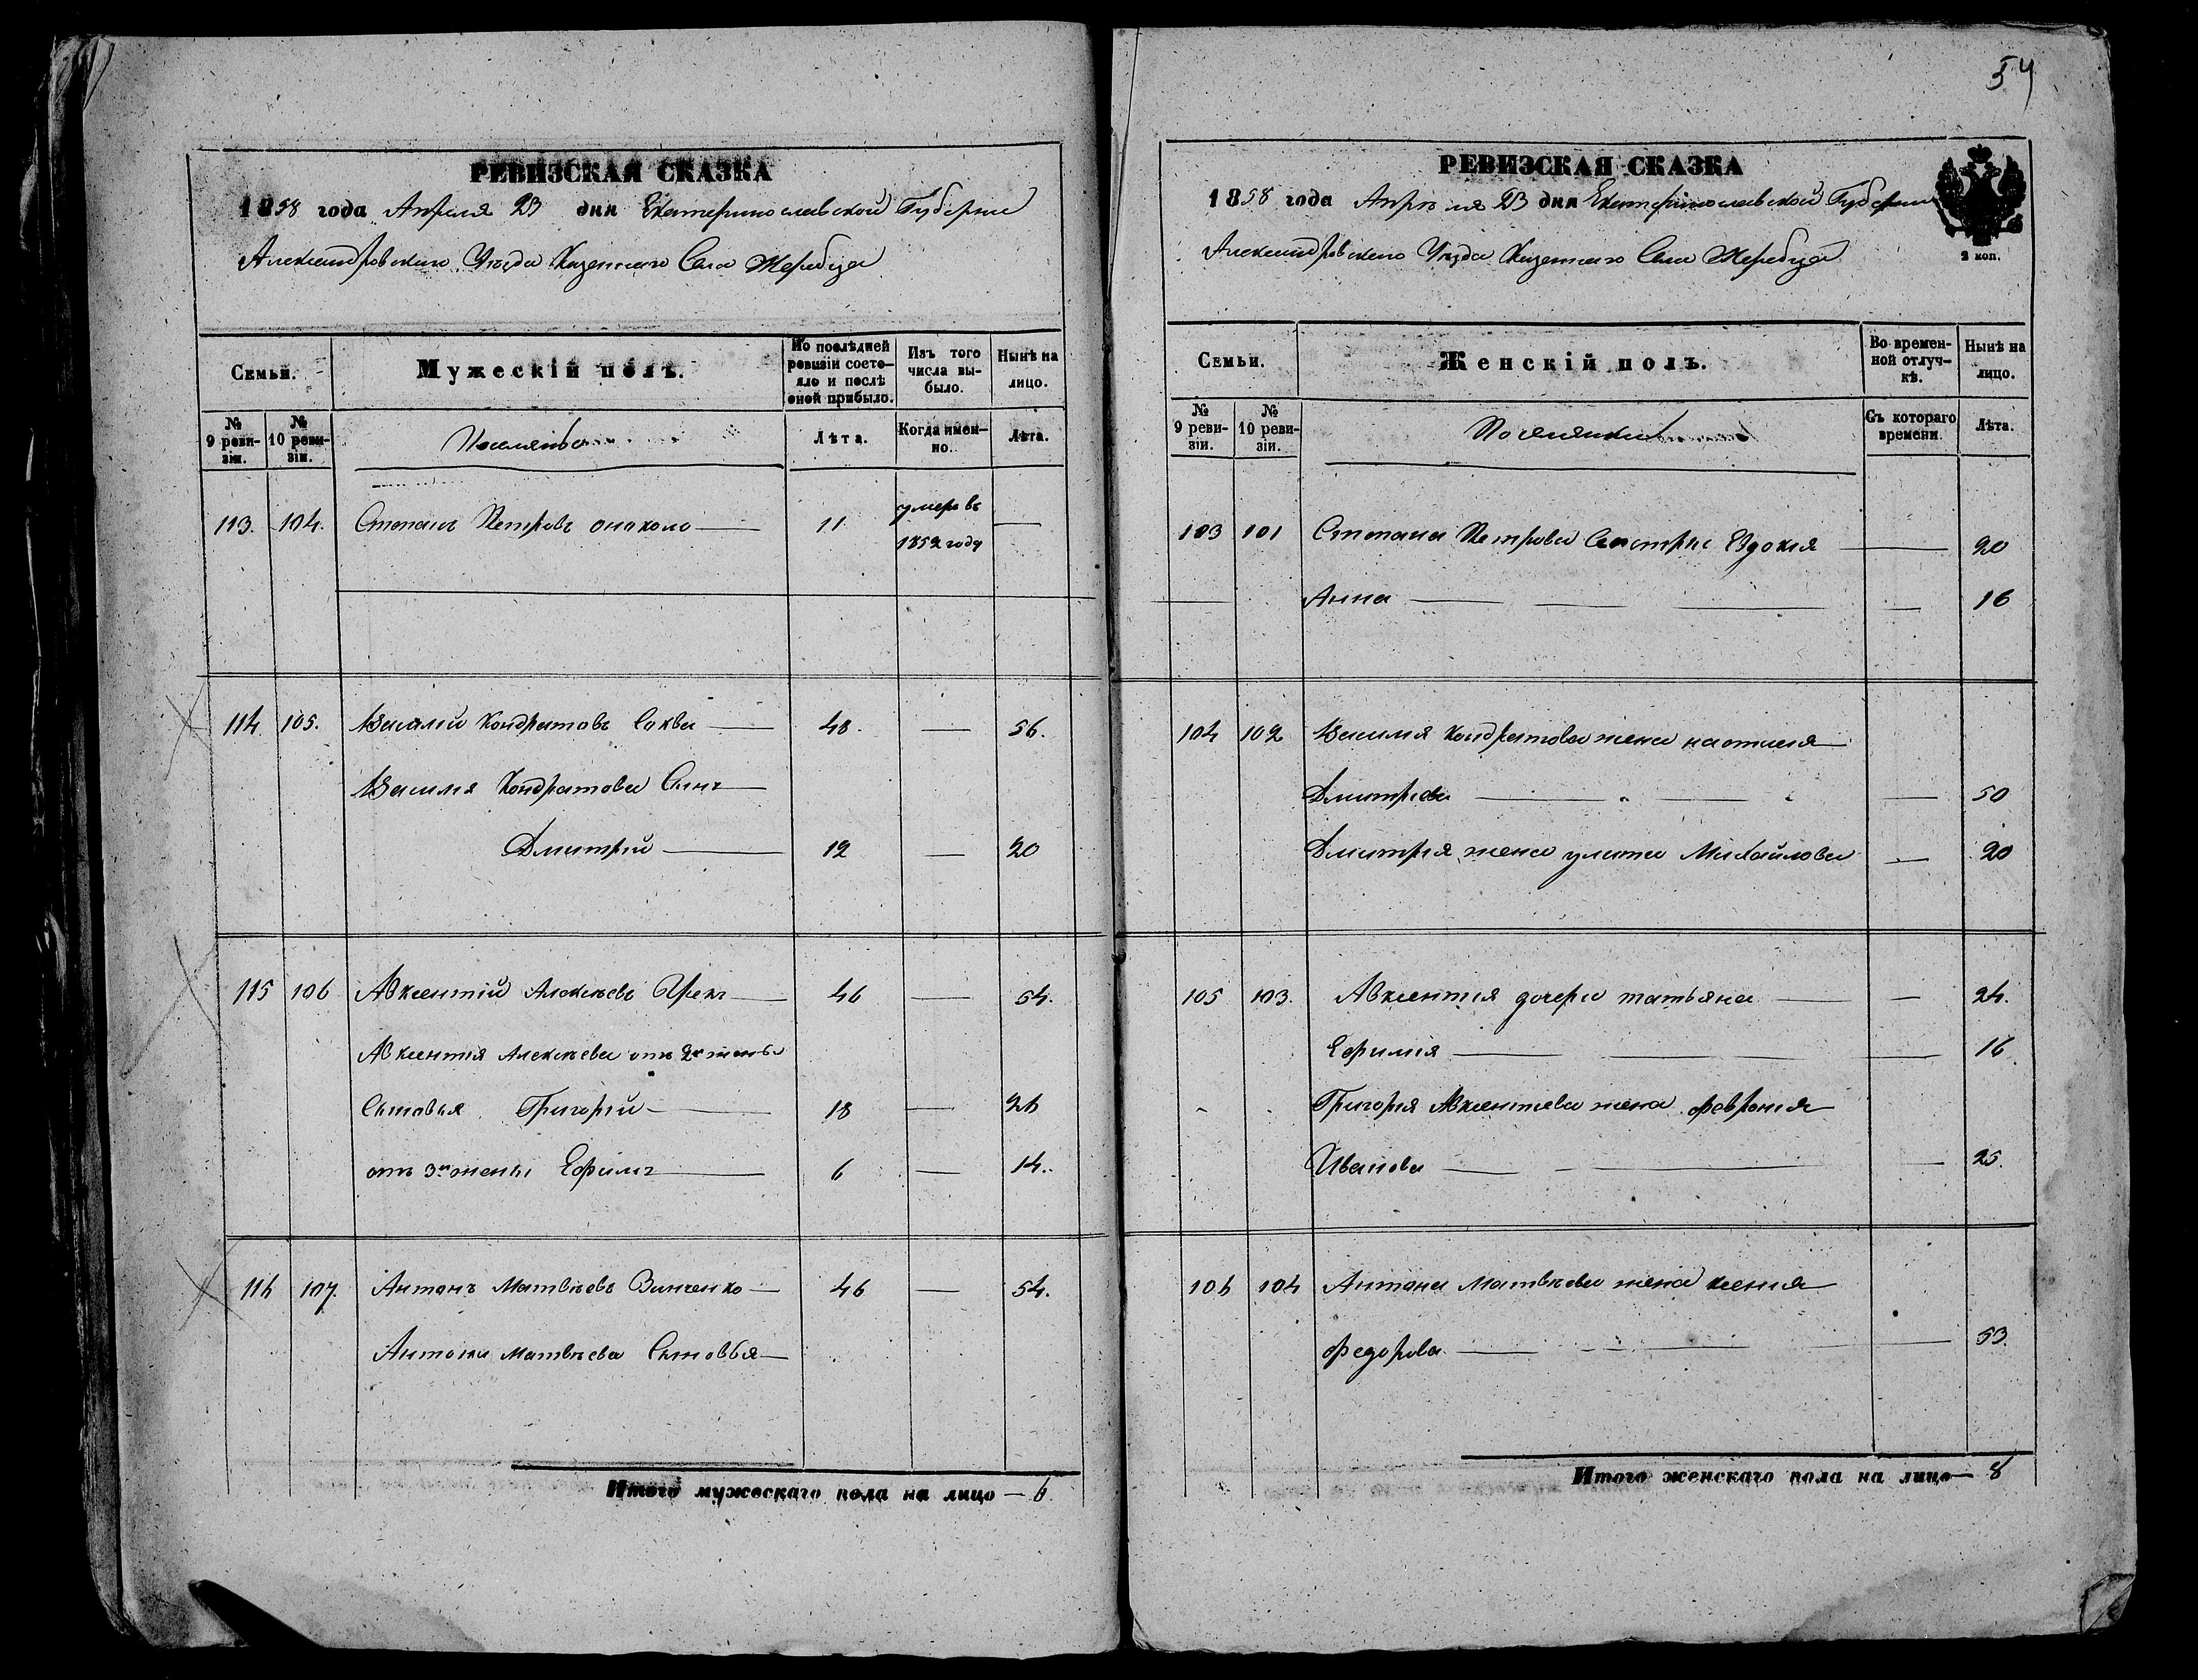 РЕВИЗСКАЯ СКАЗКА
1858 года Апреля 23 дня Екатеринославской Губернии
Александровского Уезда Казенного Села Жеребца
Семьи.
Мужескій полъ.
По послѣдней ревизіи состояло и послѣ оной прибыло.
Изъ того числа выбыло.
Нынѣ на лицо.
№ 9 ревизіи.
№ 10 ревизіи.
Поселяне
Лѣта.
Когда именно.
Лѣта.
113. 104. Степанъ Петровъ 11 умеръ въ 1852 году —
114 105. Василій Кондратовъ Саква — 48. — 56.
Василія Кондратова Сынъ —
Дмитрій — 12 — 20
115 106 Авксентій Алексѣевъ Грекъ — 46 — 54.
Авксентія Алексѣева отъ 2й жены
Сыновья Григорій — 18 — 26
отъ 3й жены Ефимъ — 6 — 14.
116 107. Антонъ Матвѣевъ Винченко — 46 — 54.
Антона Матвѣева Сыновья —
Итого мужескаго пола на лицо — 6
54
РЕВИЗСКАЯ СКАЗКА
1858 года Апреля 23 дня Екатеринославской Губернии
Александровского Уезда Казенного Села Жеребца
2 коп.
Семьи.
Женскій полъ.
Во временной отлучкѣ.
Нынѣ на лицо.
№ 9 ревизіи.
№ 10 ревизіи.
Поселянки
Съ котораго времени.
Лѣта.
103 101 Степана Петрова Сестры Евдокия — 20
Анна — — — — 16
104 102 Василия Кондратова жена Настасия
Дмитриева — — — 50
Дмитрия жена Улита Михайлова — 20
105 103. Авксентия дочери татьяна — — 24.
Ефимия — — — — 16
Григория Авксентиева жена феврония
Иванова — — — — 25.
106 104 Антона Матвѣева жена ксения
федорова — — — — 53.
Итого женскаго пола на лицо — 8